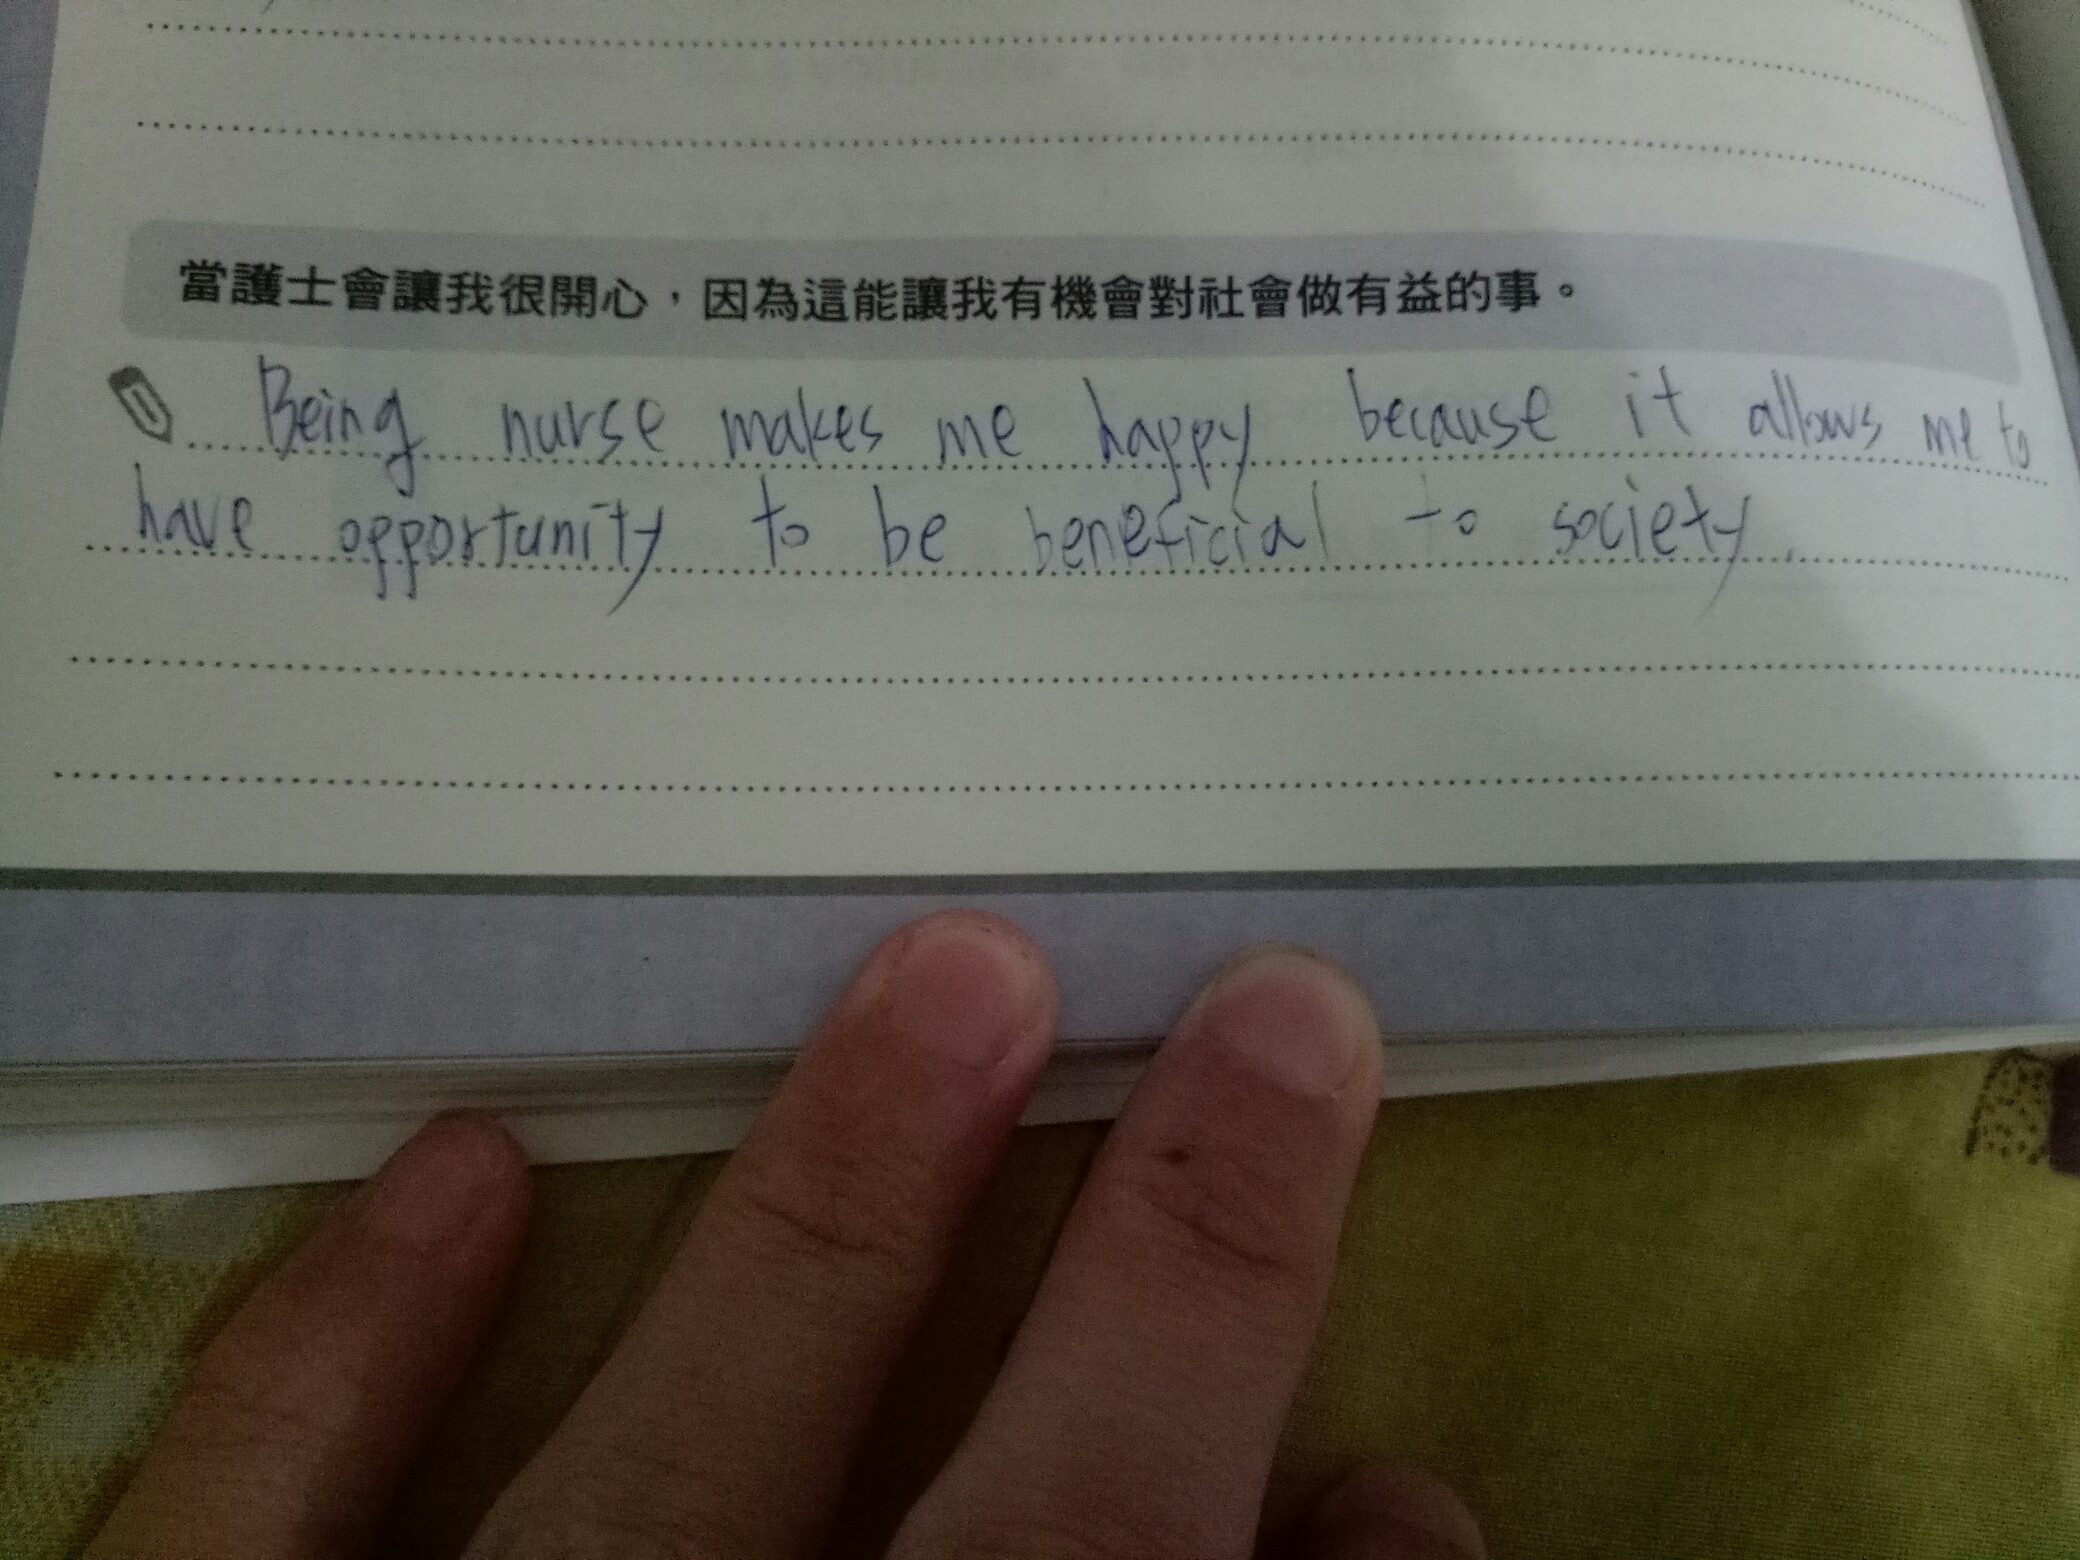 當護士會讓我很開心，因為這能讓我有機會對社會做有益的事。
Being nurse makes me happy because it allows me to
have opportunity to be beneficial to society.